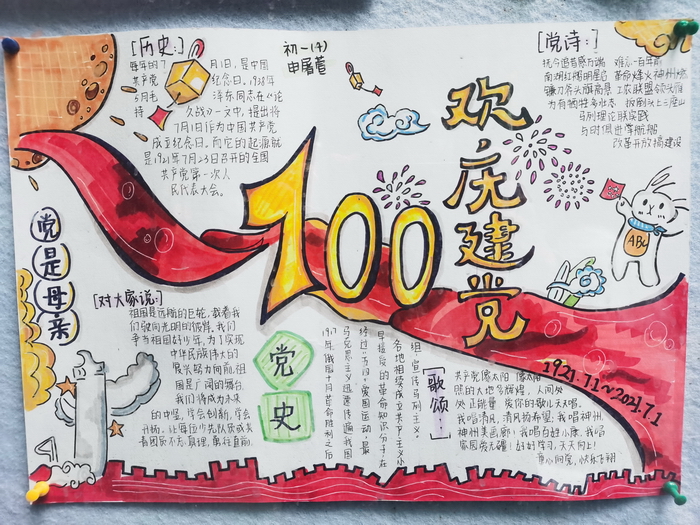 [历史:]
每年的7月1日,是中国
共产党纪念日。1938年
5月毛泽东同志在《论
持久战》一文中,提出将
7月1日作为中国共产党
成立纪念日。而它的起源就
是1921年7月23日召开的全国
共产党第一次人
民代表大会。
初一(4)
申屠萱
欢庆建党
100
1921.7.1~2021.7.1
[党诗:]
抚今追昔感万端 难忘一百年前
南湖红船明星启 革命烽火神州燃
镰刀斧头旗高举 工农联盟
为有牺牲多壮志
马列理论联实践
与时俱进
改革开放搞建设
ABC
党是母亲
[对大家说:]
祖国是远航的巨轮,载着我
们驶向光明的彼岸,我们
争当祖国好少年,为了实现
中华民族伟大的
复兴努力向前,祖
国是广阔的舞台
我们将成为未来
的中坚,学会创新,学会
开拓,让每位少先队员成长
着团员不忘真理,勇往直前。
党史
1917年俄国十月革命胜利之后
马克思主义迅速传遍我国
经过"五·四"爱国运动,最
早接受的革命知识分子,在
各地相续成立共产主义小
组,宣传马列主义。
[歌颂:]
共产党像太阳 像太阳
照的大地多辉煌,人间处
处正能量 我你的歌儿天天唱。
我唱清风,清风扬希望;我唱神州
神州美画廊;我唱百姓小康,我唱
家园发光疆!好好学习,天天向上!
童心向党,快乐飞翔